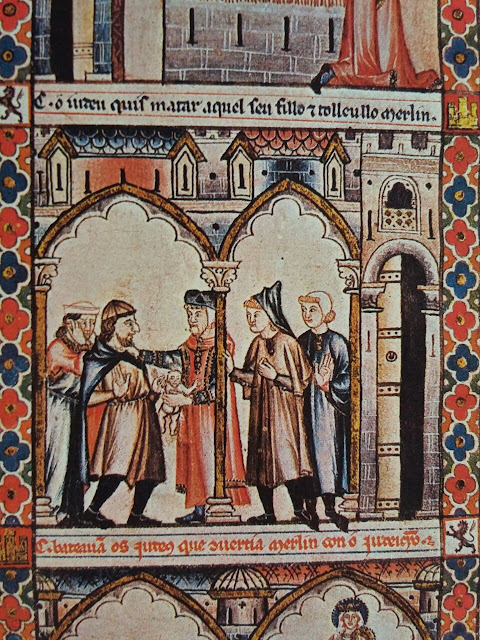 C. ó iudeu quis matar aquel seu fillo ⁊ tolleullo merlin.
C. bateauã os iudeus que ↄuertia merlin con o